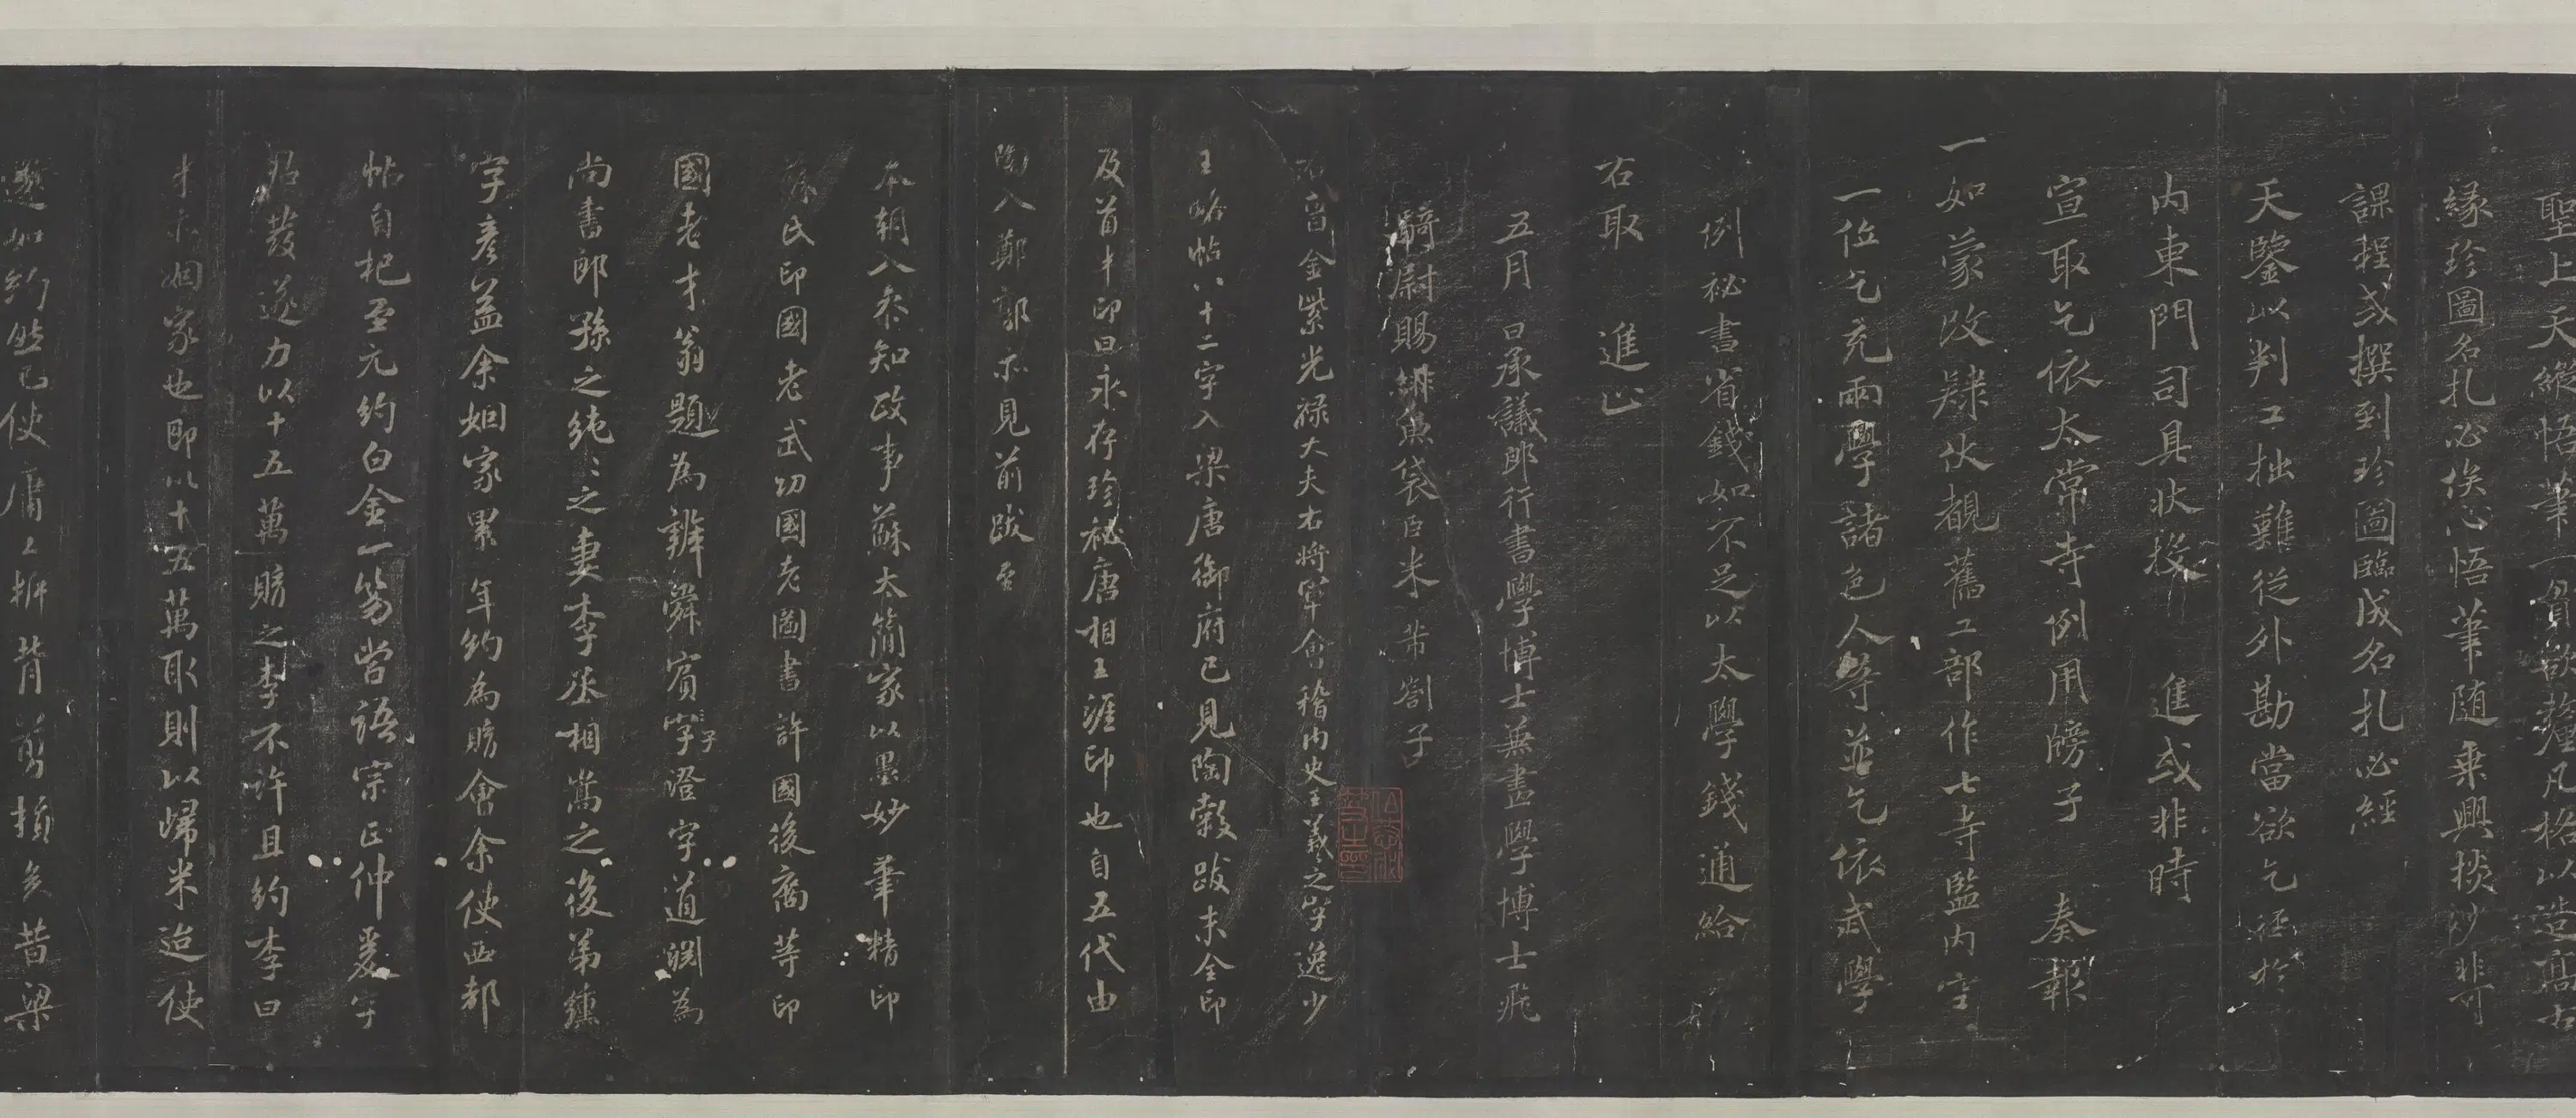 聖上天縱悟筆一貫欲釐凡格以造高古
緣珍圖名札必俟心悟筆隨乘興揆沙非可
課程或撰到珍圖臨成名札必經
天鑒以判工拙難從外勘當欲乞徑於
內東門司具狀投進或非時
宣取乞依太常寺例用牓子奏報
一如蒙改肄伏觀舊工部作七寺監內空
一位乞充兩學諸色人等並乞依武學
例祕書省錢如不足以太學錢通給
右取進止
五月日承議郎行書學博士兼畫學博士飛
騎尉賜緋魚袋臣米芾劄子
右晉金紫光祿大夫右將軍會稽內史王羲之字逸少
王略帖八十二字入梁唐御府已見陶穀跋末全印
及首半印曰永存珍祕唐相王涯印也自五代由
陶入鄭郭亦見前跋
本朝入參知政事蘇太簡家以墨妙筆精印
蘇氏印國老武功國老圖書許國後裔等印
國老才翁題為辨舜賓字子澄字道淵為
尚書郎孫之純之妻李丞相嵩之後弟鍾
字彥益余姻家累年約為購會余使西都
帖自杞至元約白金一笏當語宗正仲爰字
君發遂力以十五萬購之李不許且約李曰
米亦姻家也即以十五萬取則以歸米迨使
還如約然已使庸工拆背剪損矣昔梁